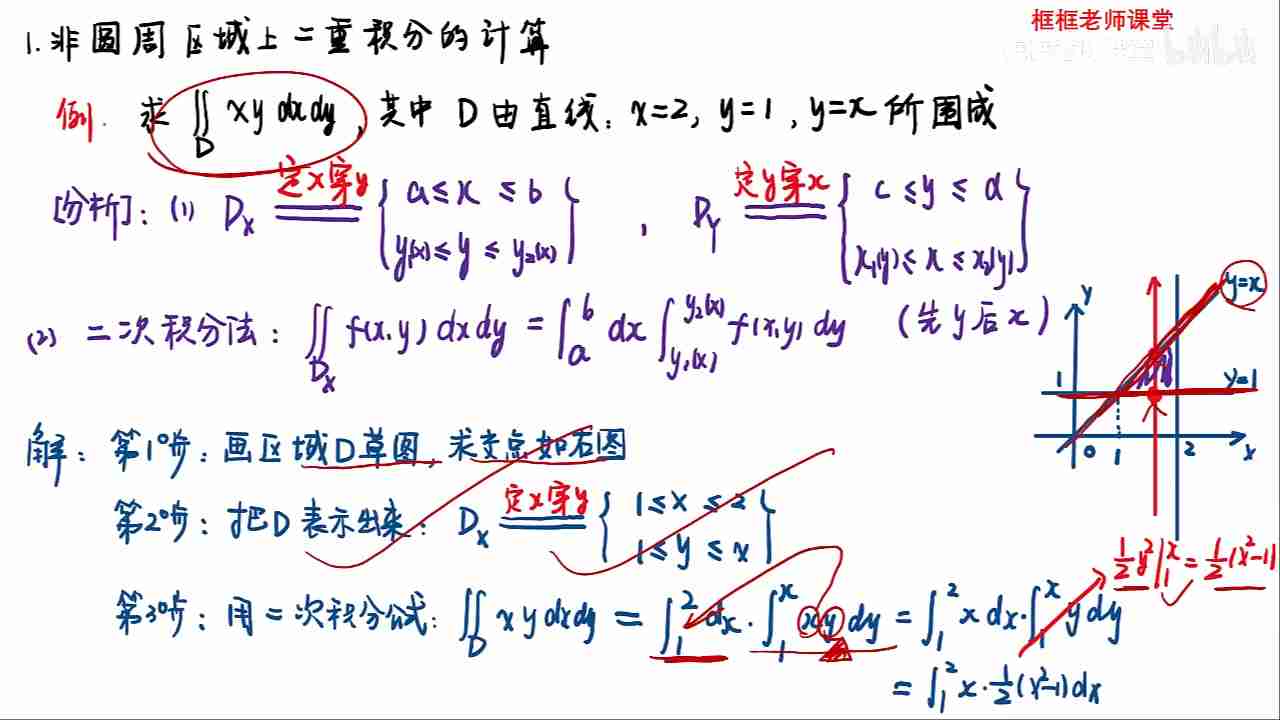 框框老师课堂
1.非圆周区域上二重积分的计算
例. 求 ∬_D xy dxdy, 其中 D 由直线: x=2, y=1, y=x 所围成
[分析]: (1) D_x 定x穿y { a≤x≤b, y₁(x)≤y≤y₂(x) }, D_y 定y穿x { c≤y≤d, x₁(y)≤x≤x₂(y) }
(2) 二次积分法: ∬_{D_x} f(x,y) dxdy = ∫_a^b dx ∫_{y₁(x)}^{y₂(x)} f(x,y) dy (先y后x)
y
y=x
1
y=1
0
1
2
x
解: 第1步: 画区域D草图, 求交点如右图
第2步: 把D表示出来: D_x 定x穿y { 1≤x≤2, 1≤y≤x }
第3步: 用二次积分公式: ∬_D xy dxdy = ∫_1^2 dx · ∫_1^x xy dy = ∫_1^2 x dx · ∫_1^x y dy
½y²|_1^x = ½(x²-1)
= ∫_1^2 x · ½(x²-1) dx